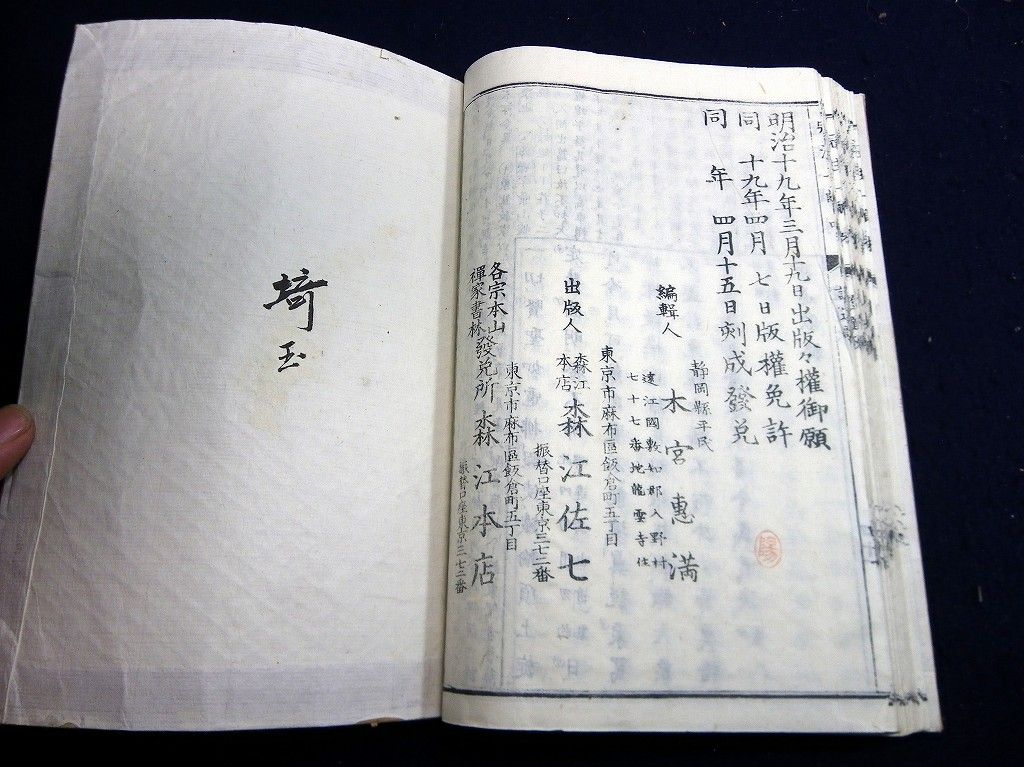 明治十九年三月十九日出版々權御願
同　十九年四月　七　日版權免許
同　年　四月十五日刻成發兌
靜岡縣平民
編輯人　木宮惠滿
遠江國敷知郡入野村
七十七番地龍雲寺住
東京市麻布區飯倉町五丁目
出版人　森江本店　森江佐七
振替口座東京三七二番
東京市麻布區飯倉町五丁目
各宗本山
禪家書林　發兌所　森江本店
振替口座東京三七二番
埼玉